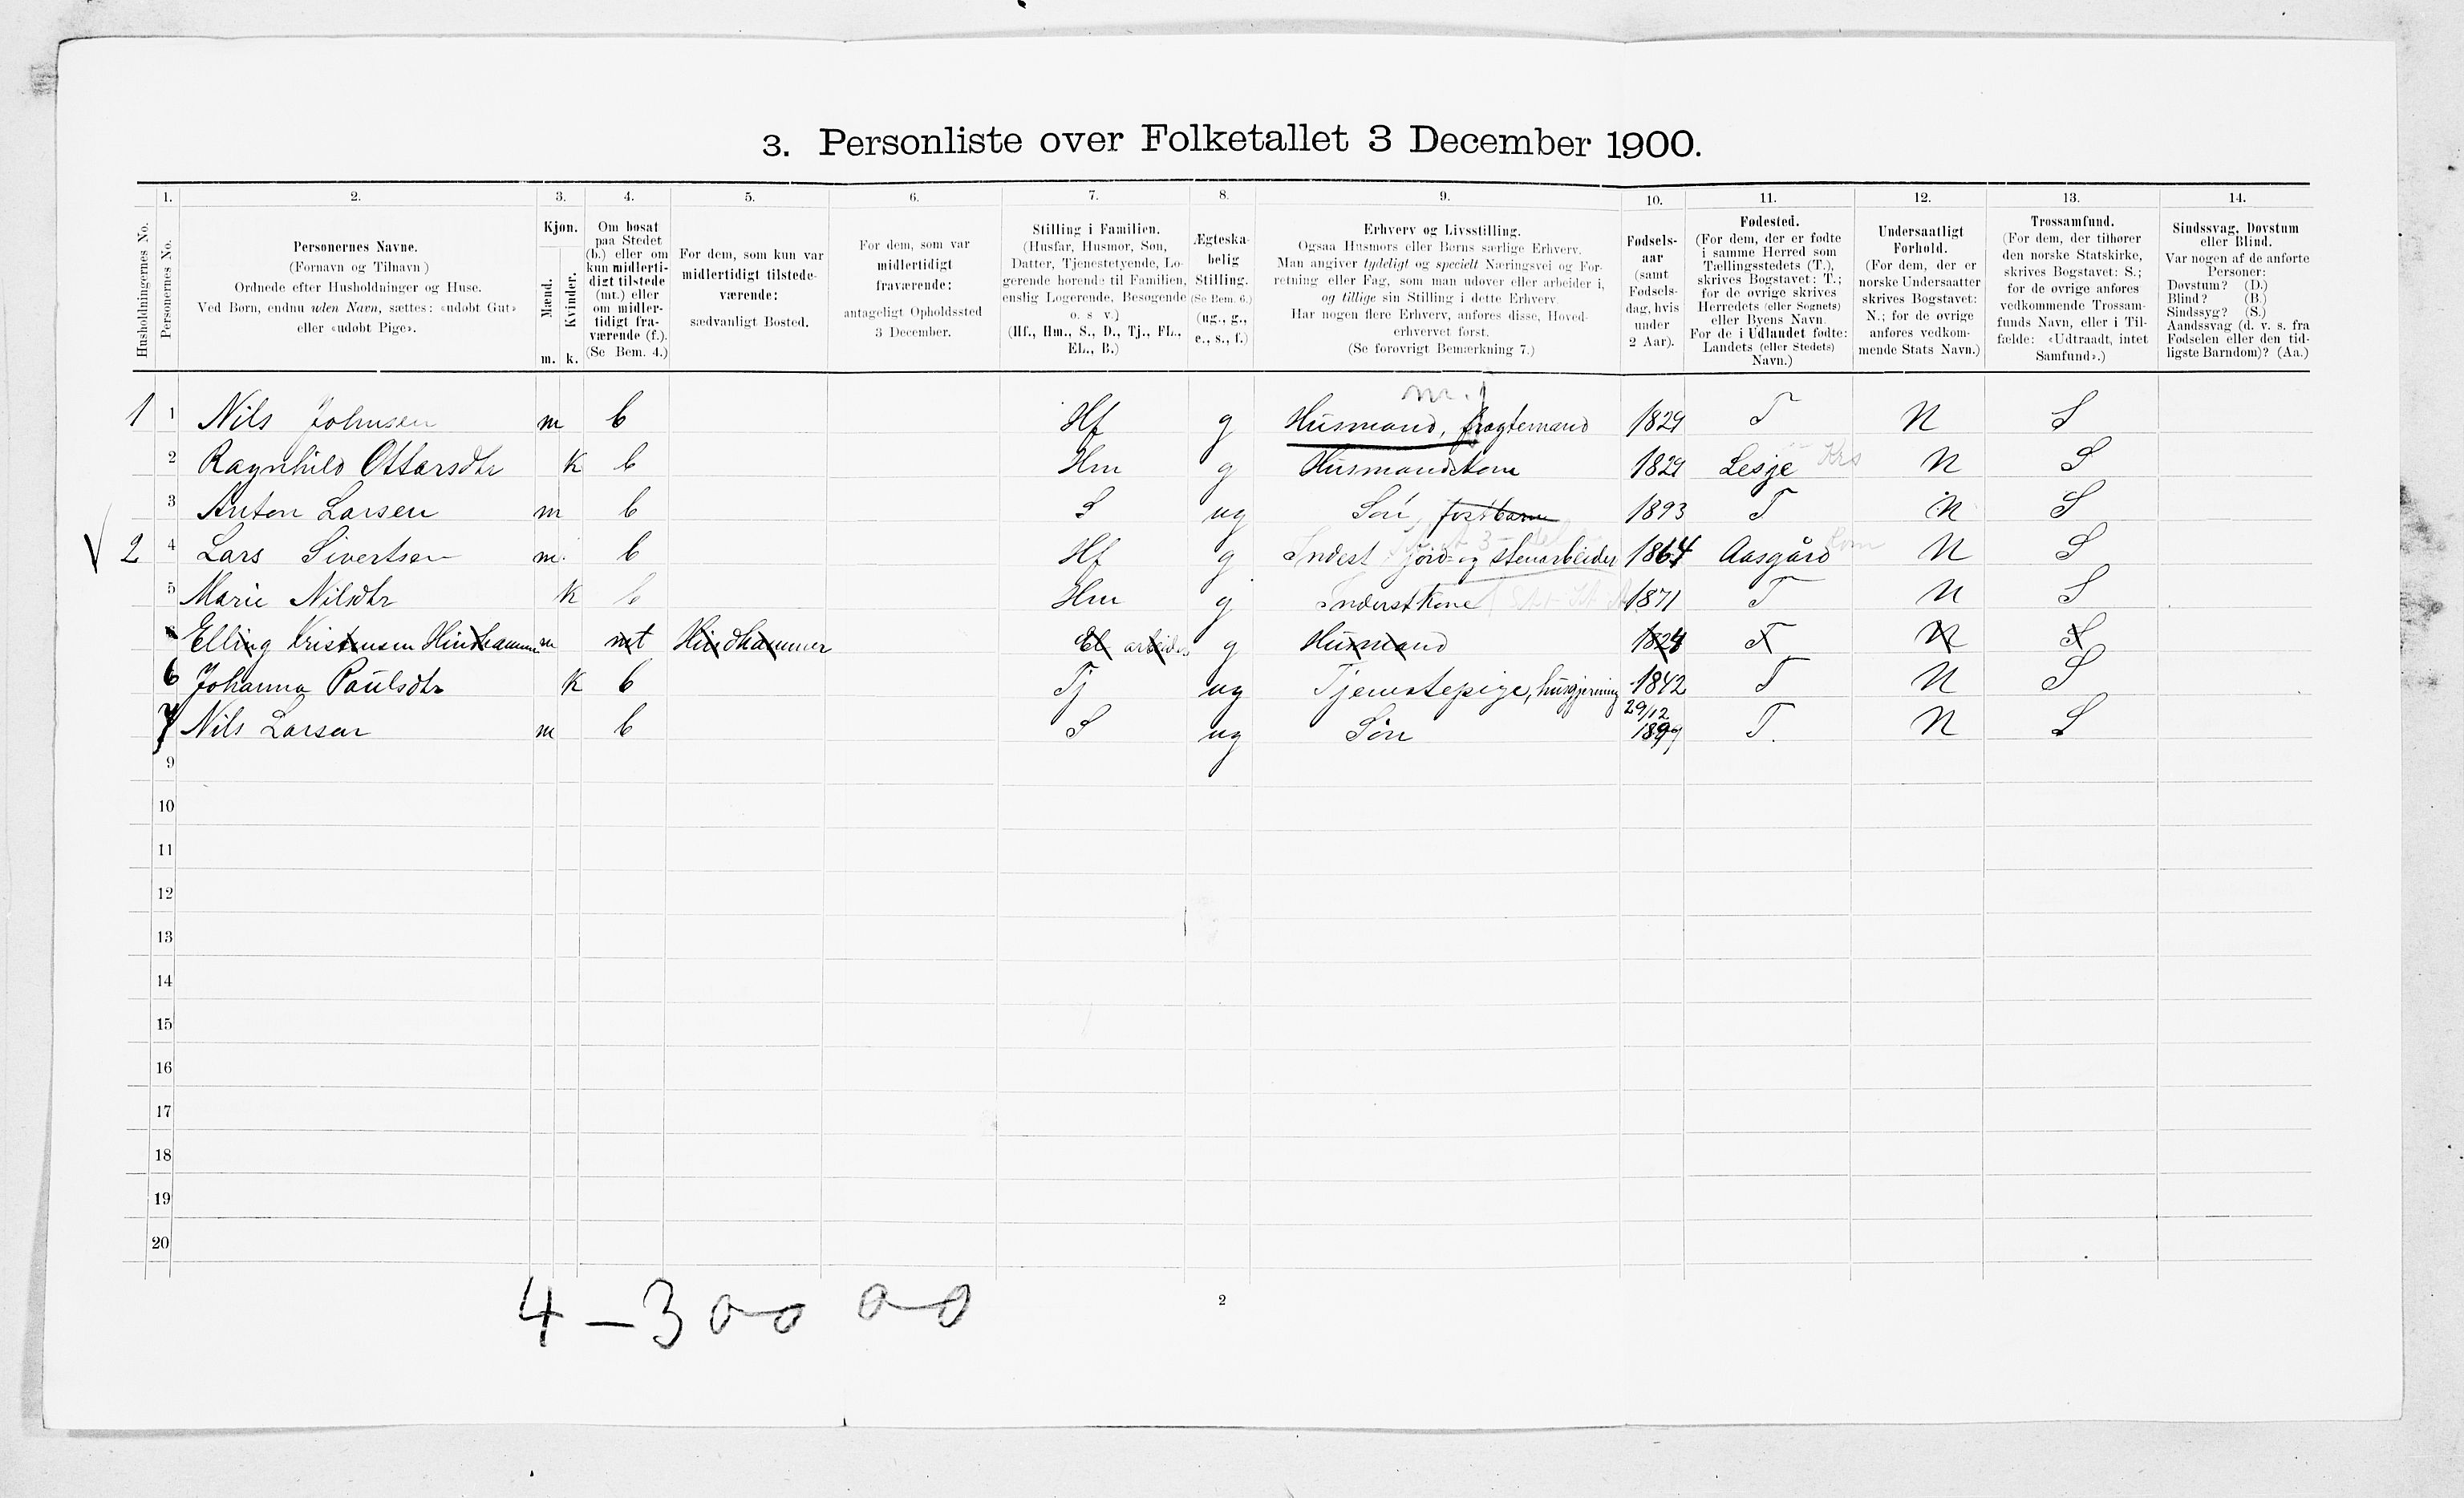 3. Personliste over Folketallet 3 December 1900.
Husholdningernes No.
1.
Personernes No.
2.
Personernes Navne.
(Fornavn og Tilnavn)
Ordnede efter Husholdninger og Huse.
Ved Børn, endnu uden Navn, sættes: «udøbt Gut»
eller «udøbt Pige».
3.
Kjøn.
Mænd.
Kvinder.
m. k.
4.
Om bosat
paa Stedet
(b.) eller om
kun midlerti-
digt tilstede
(mt.) eller
om midler-
tidigt fra-
værende (f.).
(Se Bem. 4.)
5.
For dem, som kun var
midlertidigt tilstede-
værende:
sædvanligt Bosted.
6.
For dem, som var
midlertidigt
fraværende:
antageligt Opholdssted
3 December.
7.
Stilling i Familien.
(Husfar, Husmor, Søn,
Datter, Tjenestetyende, Lo-
gerende hørende til Familien,
enslig Logerende, Besøgende
o. s. v.)
(Hf., Hm., S., D., Tj., FL.,
EL., B.)
8.
Ægteska-
belig
Stilling.
(Se Bem. 6.)
(ug., g.,
e., s., f.)
9.
Erhverv og Livsstilling.
Ogsaa Husmors eller Børns særlige Erhverv.
Man angiver tydeligt og specielt Næringsvei og For-
retning eller Fag, som man udøver eller arbeider i,
og tillige sin Stilling i dette Erhverv.
Har nogen flere Erhverv, anføres disse, Hoved-
erhvervet først.
(Se forøvrigt Bemærkning 7.)
10.
Fødsels-
aar
(samt
Fødsels-
dag, hvis
under
2 Aar).
11.
Fødested.
(For dem, der er fødte
i samme Herred som
Tællingsstedets (T.),
skrives Bogstavet: T.;
for de øvrige skrives
Herredets (eller Sognets)
eller Byens Navn.
For de i Udlandet fødte:
Landets (eller Stedets)
Navn.)
12.
Undersaatligt
Forhold.
(For dem, der er
norske Undersaatter
skrives Bogstavet:
N.; for de øvrige
anføres vedkom-
mende Stats Navn.)
13.
Trossamfund.
(For dem, der tilhører
den norske Statskirke,
skrives Bogstavet: S.;
for de øvrige anføres
vedkommende Trossam-
funds Navn, eller i Til-
fælde: «Udtraadt, intet
Samfund».)
14.
Sindssvag, Døvstum
eller Blind.
Var nogen af de anførte
Personer:
Døvstum? (D.)
Blind? (B.)
Sindssyg? (S.)
Aandssvag (d. v. s. fra
Fødselen eller den tid-
ligste Barndom)? (Aa.)
m.
1 1 Nils Johnsen m b Hf g Husmand, fragtemand 1829 T N S
2 Ragnhild Ottarsdtr k b Hm g Husmandskone 1829 Lesje Krs N S
3 Anton Larsen m b S ug Søn, fostbarn 1893 T N S
2 4 Lars Sivertsen m b Hf g Inderst jord- og stenarbeider 1864 Aasgård Rom N S
5 Marie Nilsdtr k b Hm g Inderstkone 1871 T N S
Elling Kristensen Hindhammer m mt Hindhammer El arbeider g Husmand 1824 T N S
6 Johanna Paulsdtr k b Tj ug Tjenestepige, husgjerning 1842 T N S
7 Nils Larsen m b S ug Søn 29/12 1899 T. N S
9
10
11
12
13
14
15
16
17
18
19
20
4 – 3 0 0 0 0
2